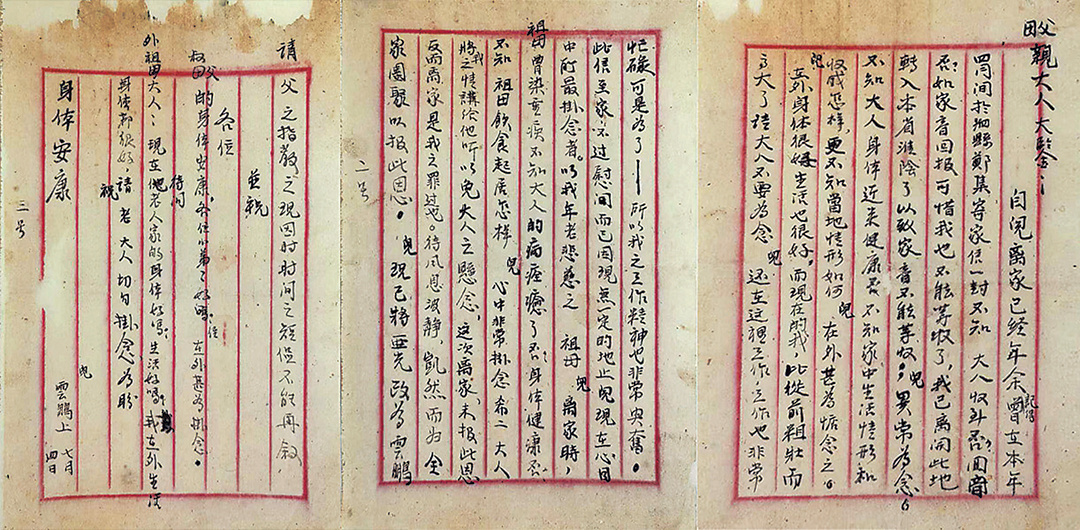 父母親大人大鑒：
自兒离家已經年余，記得曾在本年
四月间於沭縣鄭集寄家信一封不知 大人收到否，回音
否，如家音回报可惜我也不能等收了，我已离開此地
轉入本省淮陰了以致家音不能等收，兒異常為念。
不知大人身体近来健康否 不知家中生活情形和
收成怎样，更不知當地情形如何 兒在外甚為惦念之。
兒在外身体很好生活也很好。而現在的我，比從前粗壮而
高大了 請大人不要為念 兒还在这裡工作 工作也非常
忙碌可是為了——所以我之工作精神也非常興奮。
此信至家不过慰問而已因現無一定的地止兒現在心目
中所最掛念者。以我年老悲慈之 祖母，兒离家時，
祖母曾染重疾不知大人的病痊癒了否身体健康否
不知 祖母飲食起居怎样 兒心中非常掛念希二大人
將我之情講给他听以免大人之懸念，这次离家，未报此恩
反而离家是我之罪过也。待风息波静，凱然而归 全
家團聚以报此恩。 兒現已将亚光改為雲鵬
二号
請 父之指教之現因时时间之短促不能再叙
並祝
各位
叔父母的身体安康，各位小弟弟好嗎，侄在外甚為掛念。
待问
外祖母大人：現在他老人家的身体好嗎，生活好嗎，我在外生活
身体都很好請 老大人切勿掛念為盼
祝
身体安康
兒 雲鵬上 七月四日
三号